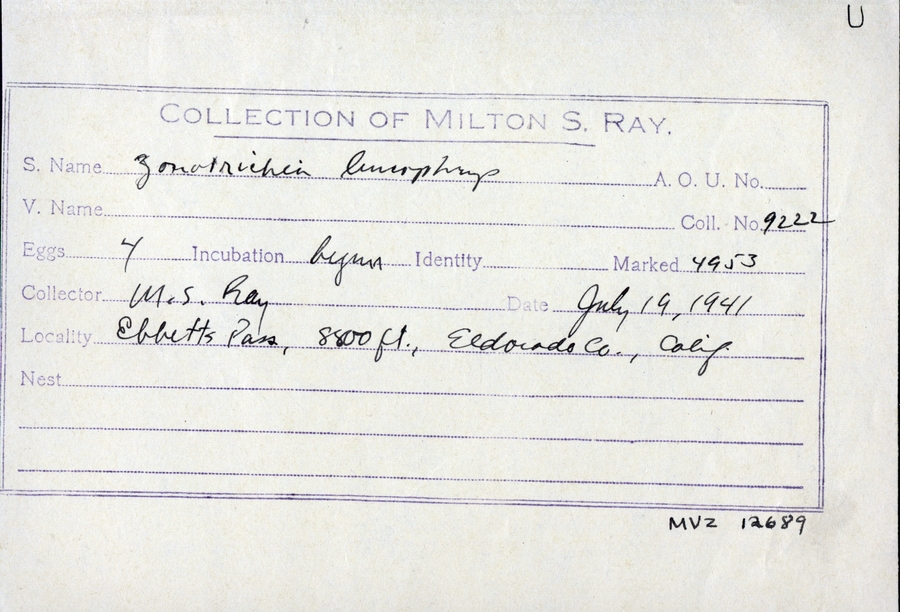 U
COLLECTION OF MILTON S. RAY.
S. Name Zonotrichia leucophrys A. O. U. No.
V. Name Coll. No. 9222
Eggs 4 Incubation begun Identity Marked 4953
Collector M. S. Ray Date July 19, 1941
Locality Ebbetts Pass, 8800 ft., Eldorado Co., Calif.
Nest
MVZ 12689